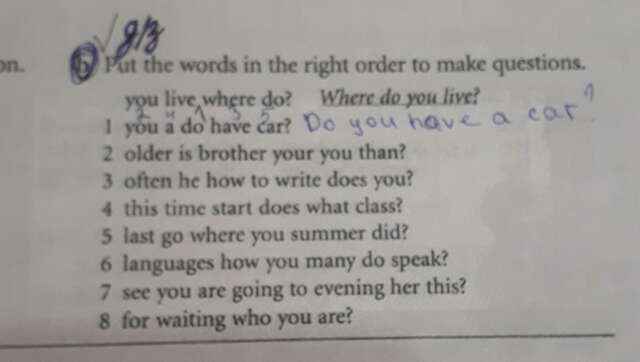 on.
д/з
b Put the words in the right order to make questions.
you live where do? Where do you live?
1 you a do have car? Do you have a car?
2 older is brother your you than?
3 often he how to write does you?
4 this time start does what class?
5 last go where you summer did?
6 languages how you many do speak?
7 see you are going to evening her this?
8 for waiting who you are?